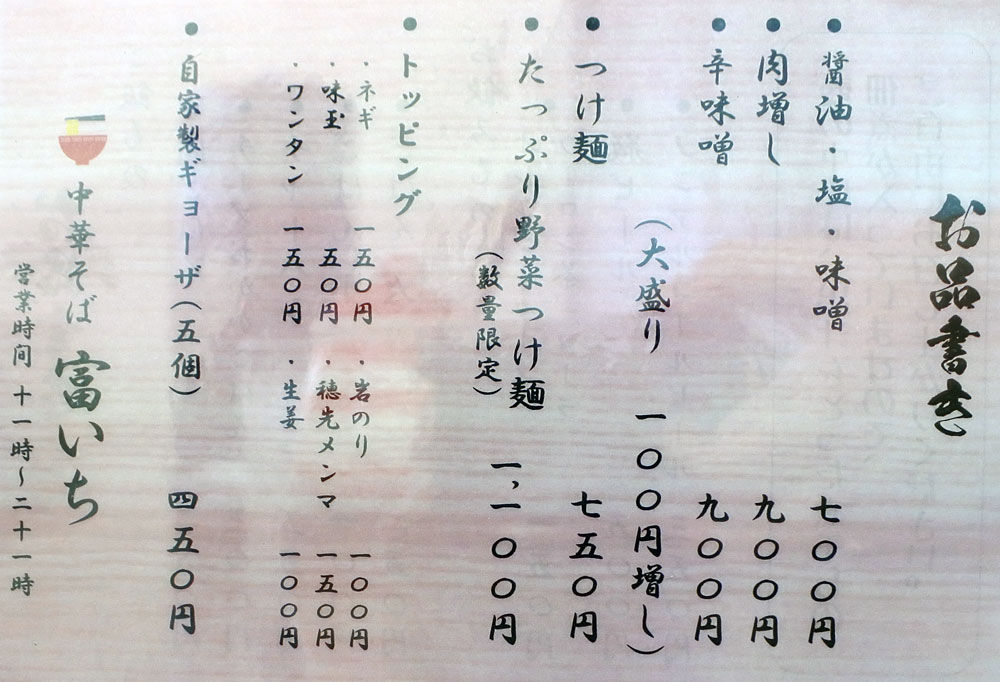 お品書き
●醤油・塩・味噌 七〇〇円
●肉増し 九〇〇円
●辛味噌 九〇〇円
(大盛り 一〇〇円増し)
●つけ麺 七五〇円
●たっぷり野菜つけ麺 一,一〇〇円
(数量限定)
●トッピング
・ネギ 一五〇円 ・岩のり 一〇〇円
・味玉 五〇円 ・穂先メンマ 一五〇円
・ワンタン 一五〇円 ・生姜 一〇〇円
●自家製ギョーザ(五個) 四五〇円
中華そば 富いち
営業時間 十一時~二十一時